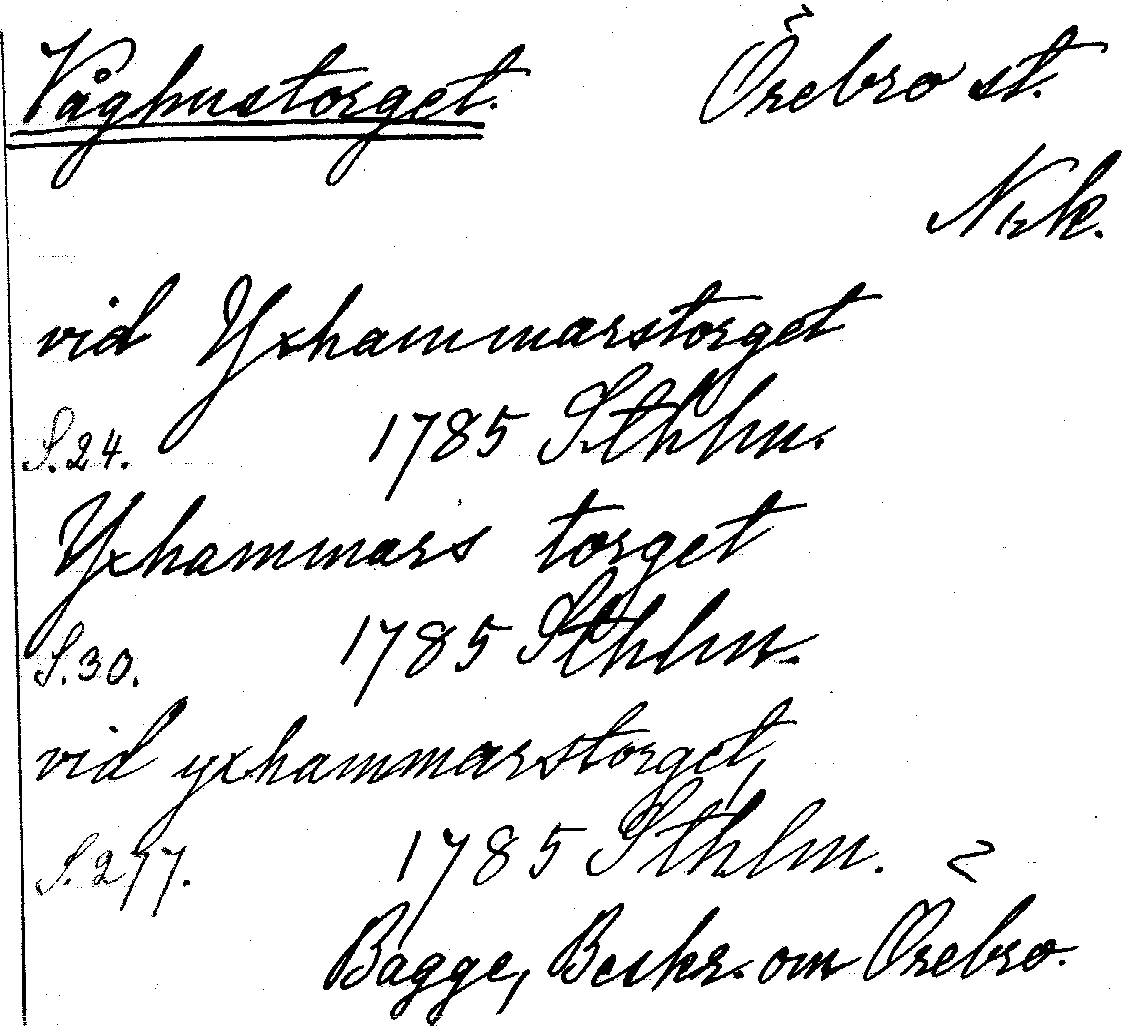 Våghustorget. Örebro st.
Nrk.
vid Yxhammarstorget
S. 24. 1785 Sthlm.
Yxhammars torget
S. 30. 1785 Sthlm.
vid yxhammarstorget,
S. 277. 1785 Sthlm.
Bagge, Beskr. om Örebro.